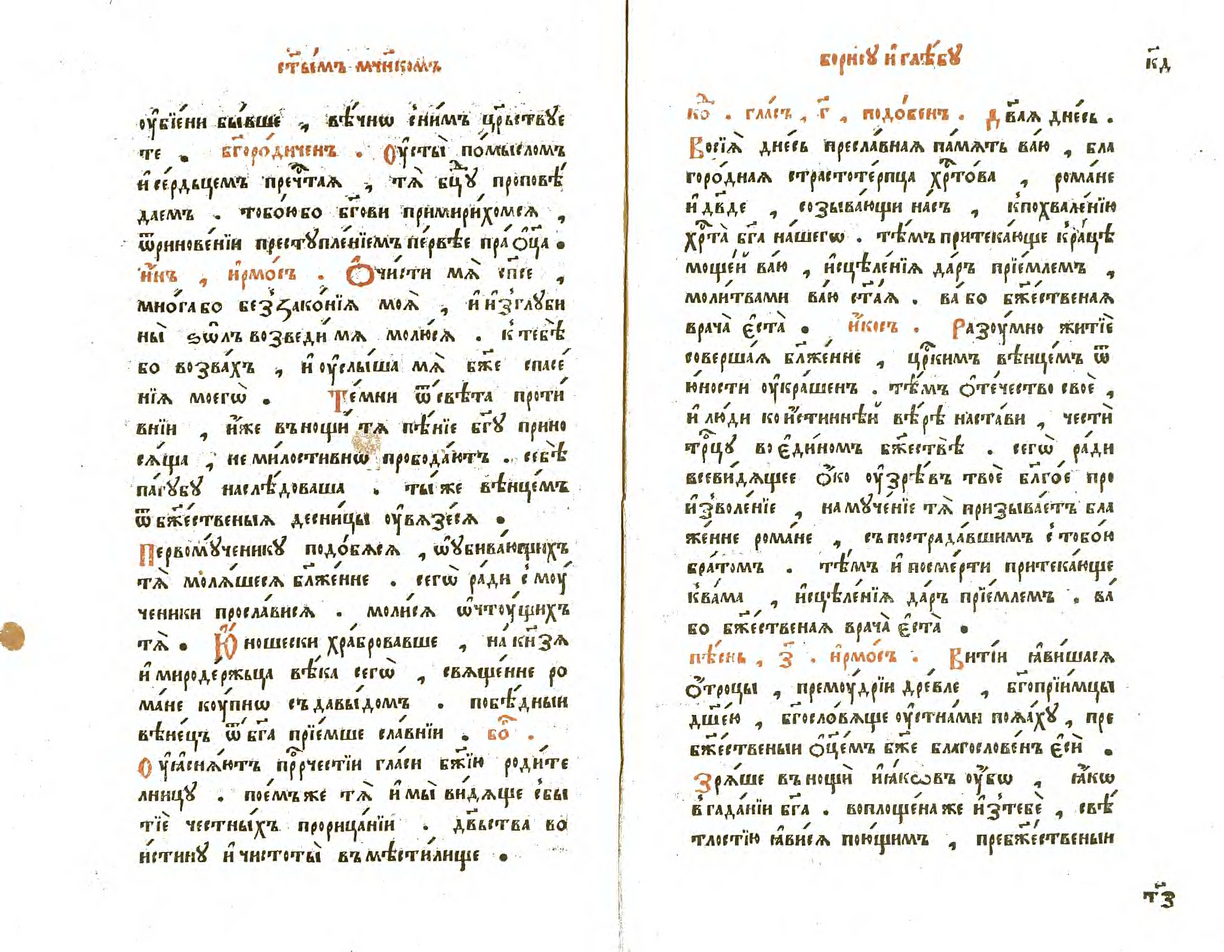 ст҃ы́мъ мч҃нкомъ
ѹ҆бїени бы́вше , вѣ́чнѡ сни́мъ црь҃ствуе
те . бг҃оро́диченъ . Оу҆сты̀ по́мысломъ
и҆ се́рдьцемъ пречⷭ҇тая , тѧ̀ бцⷣу проповѣ
даемъ . тобо́юбо бг҃ови примири́хомсѧ ,
ѿринове́нїи престꙋпле́нїемъ пе́рвѣе пра ѻ҆ц҃а .
и҆нъ , и҆рмо́съ . Ѻ҆чи́сти мѧ̀ сп҃се ,
мно́га бо беззако́нїѧ моѧ̀ , и҆ и҆з̾глꙋби
ны̀ ѕѡ́лъ возведи́ мѧ молю́сѧ . к тебѣ̀
бо возва́хъ , и҆ ѹ҆слы́ша мѧ̀ бж҃е спасе́
нїѧ моегѡ̀ . Те́мни ѿ свѣ́та проти́
внїи , и҆́же въ нощи́ тѧ пѣ́нїе бг҃ꙋ прино
сѧ́ща , не ми́лостивнѡ прободаю́тъ . себѣ̀
па́гꙋбꙋ наслѣ́доваша . ты́ же вѣнце́мъ
ѿ бж҃е́ственыѧ десни́цы ѹ҆вѧзе́сѧ .
Первомꙋ́ченикꙋ подо́бѧсѧ , ѡ҆ ѹ҆бива́ющихъ
тѧ̀ молѧ́шесѧ бл҃же́нне . сегѡ̀ ра́ди с моу́
ченики просла́висѧ . моли́сѧ ѡ҆ чтоу́щихъ
тѧ̀ . Ю҆́ношески хра́бровавше , на кн҃зѧ
и҆ мироде́ржьца вѣ́ка сегѡ̀ , свѧще́нне ро
ма́не коу́пнѡ съ дав́ы́домъ . побѣ́дныи
вѣ́нецъ ѿ бг҃а прїе́мше сла́внїи . бо҃ .
Оу҆ѧсня́ютъ прⷪ҇рчестїи гла́си бж҃їю роди́те
лницꙋ . пое́мъ же тѧ̀ и҆ мы̀ ви́дѧще сбы
тїѐ че́стны́хъ прорица́нїи . дв҃ьства во
и́стинꙋ и҆ чистоты̀ въмѣсти́лище .
бори́сꙋ и҆ глѣ́бꙋ
к҃д
ко҃ . гла́съ , г҃ , подо́бенъ . Дв҃ая дне́сь .
Восїѧ̀ дне́сь пресла́вная па́мѧть ва́ю , бла
горо́дная страстоте́рпца хрⷭ҇то́ва , рома́не
и҆ дв҃де , созыва́ющи на́съ , к похвале́нїю
хрⷭ҇та̀ бг҃а на́шегѡ . тѣ́мъ притека́юще к ра́цѣ
моще́й ва́ю , и҆сцѣле́нїѧ да́ръ прїе́млемъ ,
моли́твами ва́ю ст҃а́ѧ . ва́ бо бж҃е́ственая
врача̀ є҆ста̀ . и҆́косъ . Разоу́мно житїѐ
соверша́ѧ бл҃же́нне , црⷭ҇кимъ вѣнце́мъ ѿ
ю́ности ѹ҆кра́шенъ . тѣ́мъ ѻ҆те́чество своѐ ,
и҆ лю́ди ко и҆́стиннѣй вѣ́рѣ наста́ви , че́сти
трⷪ҇цꙋ во є҆ди́номъ бж҃ествѣ̀ . сегѡ̀ ра́ди
всеви́дѧщее ѻ҆́ко ѹ҆зрѣ́въ твоѐ бл҃го́е про
и҆зволе́нїе , на мꙋче́нїе тѧ̀ призыва́етъ бла
же́нне рома́не , съ пострада́вшимъ с тобо́ю
бра́томъ . тѣ́мъ и҆ посме́рти притека́юще
к ва́ма , и҆сцѣле́нїѧ да́ръ прїе́млемъ . ва́
бо бж҃е́ственая врача̀ є҆ста̀ .
пѣ́снь , з҃ . и҆рмо́съ . Витїи ꙗ҆ви́шасѧ
ѻ҆́троцы , премоу́дрїи дре́вле , бг҃опрїи́мцы
дш҃е́ю , бг҃осло́вѧще ѹ҆стна́ми поѧ́хꙋ , пре
бж҃е́ственыи ѻ҆ц҃е́мъ бж҃е благослове́нъ є҆сѝ .
Зрѧ́ше въ нощѝ и҆ꙗ́ковъ ѹ҆́бѡ , ꙗ҆́кѡ
в гада́нїи бг҃а . воплоще́на же и҆з̾тебѐ , свѣ́
тлостїю ꙗ҆ви́сѧ пою́щимъ , пребж҃е́ственыи
т҃з